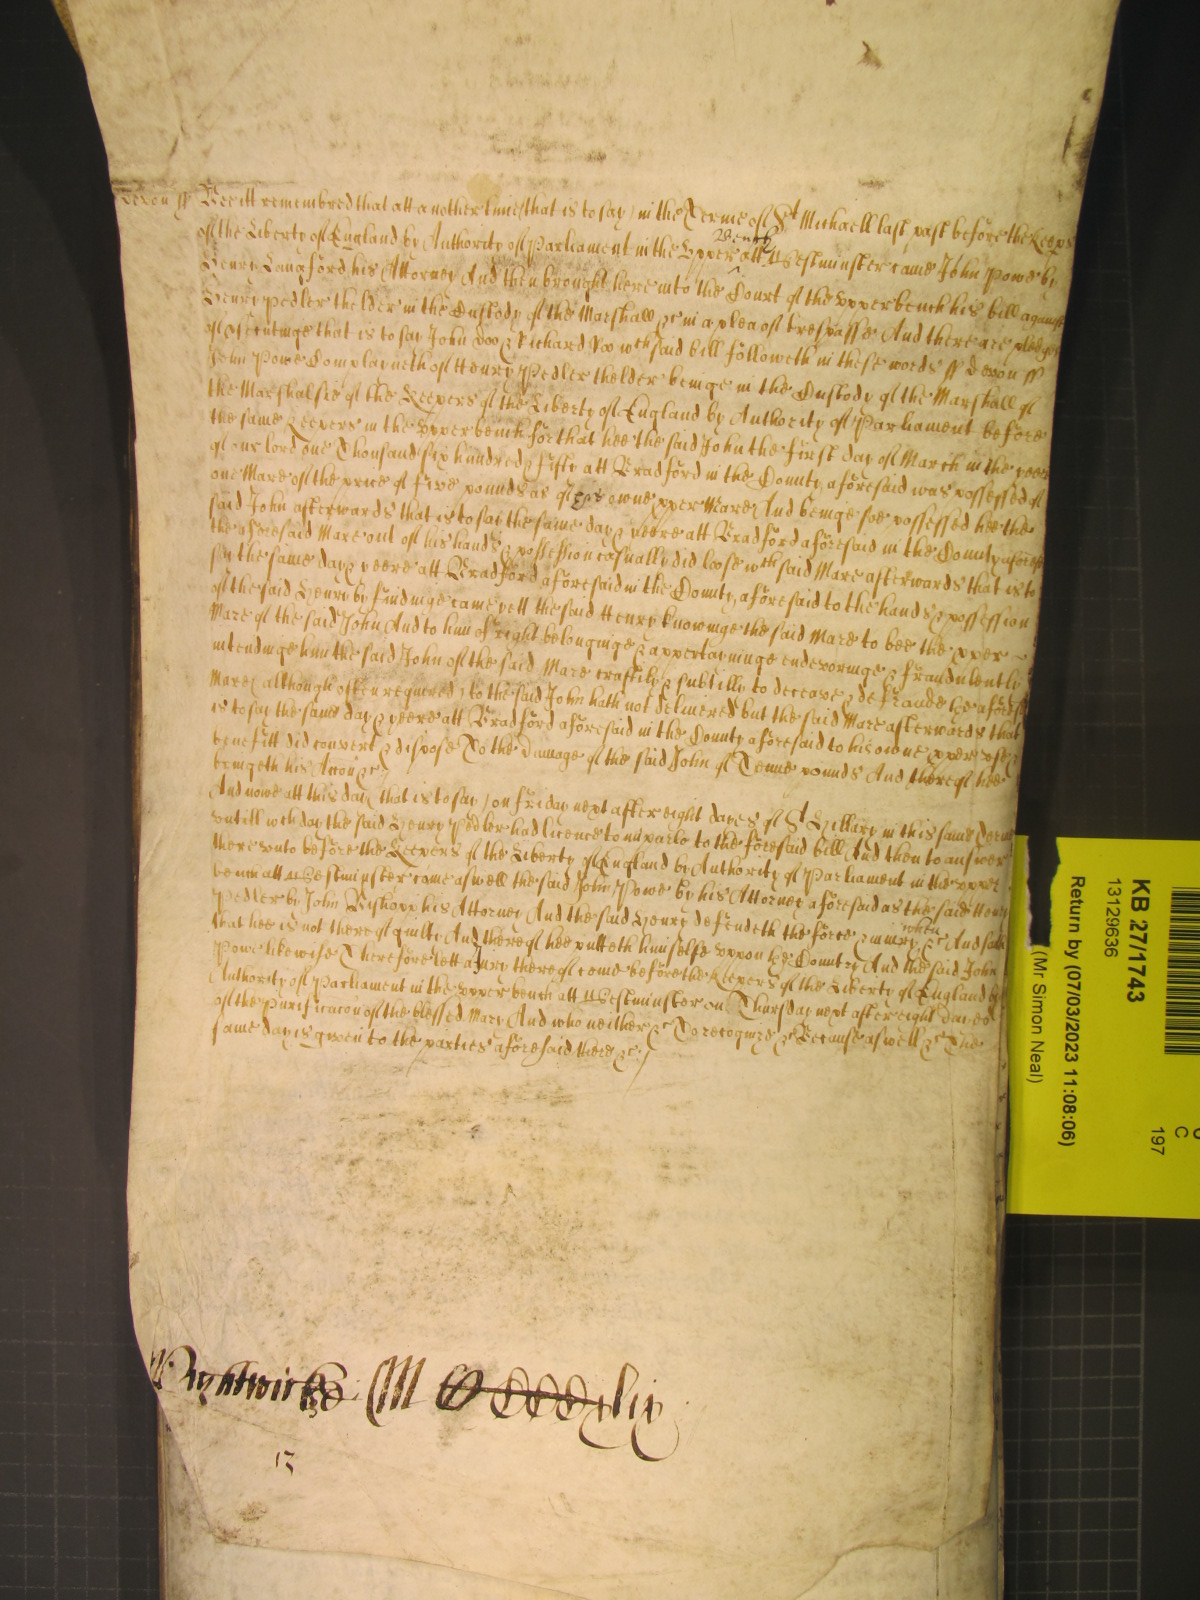 Devon ss Bee itt remembred that att another time (that is to say) in the Terme of St Michaell last past before the Keeps
of the Liberty of England by Authority of Parliament in the Upper Bench att Westminster came John Powe by
Henry Langford his Attorney And then brought here into the Court of the Upper bench his bill against
Henry Pedler thelder in the Custody of the Marshall &c in a plea of trespasse And there are pledges
of that is to say John Doo & Richard Roo wch said bill followeth in these words ss Devon ss
John Powe Complayneth of Henry Pedler thelder beinge in the Custody of the Marshall of
the Marshalsie of the Keepers of the Liberty of England by Authority of Parliament before
the same Keepers in the Upper bench for that hee the said John the first day of March in the yeere
of our lord one Thousand six hundred & fifty att Bradford in the County aforesaid was possessed of
one Mare of the price of five pounds as of his owne pper Mare And beinge soe possessed hee the
said John afterwards that is to say the same day & yeere att Bradford aforesaid in the County aforesd
the aforesaid Mare out of his hands & possession casually did loose wch said Mare afterwards that is to
say the same day & yeere att Bradford aforesaid in the County aforesaid to the hands & possession
of the said Henry by findinge came yett the said Henry knowinge the said Mare to bee the pper
Mare of the said John And to him of right belonginge & appertayninge endevoringe & fraudulently
intendinge him the said John of the said Mare craftily & subtilly to deceave & defraude the aforesd
Mare (although often required) to the said John hath not delivered but the said Mare afterwards that
is to say the same day & yeere att Bradford aforesaid in the County aforesaid to his owne pper use &
benefitt did convert & dispose To the Damage of the said John of Tenne pounds And thereof hee
bringeth his &c
And nowe att this day (that is to say) on friday next after eight dayes of St Hillary in this same Terme
untill wch day the said Henry Pedler had licence to imparle to the foresaid bill And then to answer
there unto before the Keepers of the Liberty of England by Authority of Parliament in the upper
bench att Westminster came aswell the said John Powe by his Attorney aforesaid as the said Henry
Pedler by John Bishopp his Attorney And the said Henry defendeth the force & iniury when &c And saith
that hee is not thereof guilty And thereof hee putteth himselfe uppon the Country And the said John
Powe likewise Therefore lett a Jury thereof come before the Keepers of the Liberty of England by
Authority of Parliament in the upper bench att Westminster on Thursday next after eight dayes
of the Purificacon of the blessed Mary And who neither &c To recognize &c Because aswell &c The
same day is given to the parties aforesaid there &c
Wightwicke
13
KB 27/1743
13129636
Return by (07/03/2023 11:08:06)
(Mr Simon Neal)
C
197